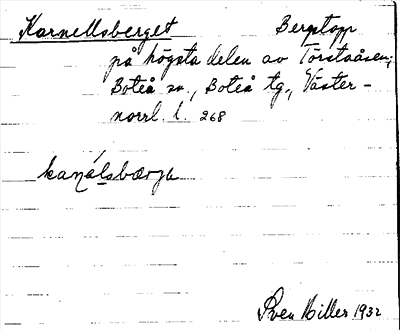 Karnellsberget Bergstopp
på högsta delen av Torstaåsen;
Boteå sn., Boteå tg., Väster-
norrl. l. 268
kanálsbærju
Sven Hiller 1932